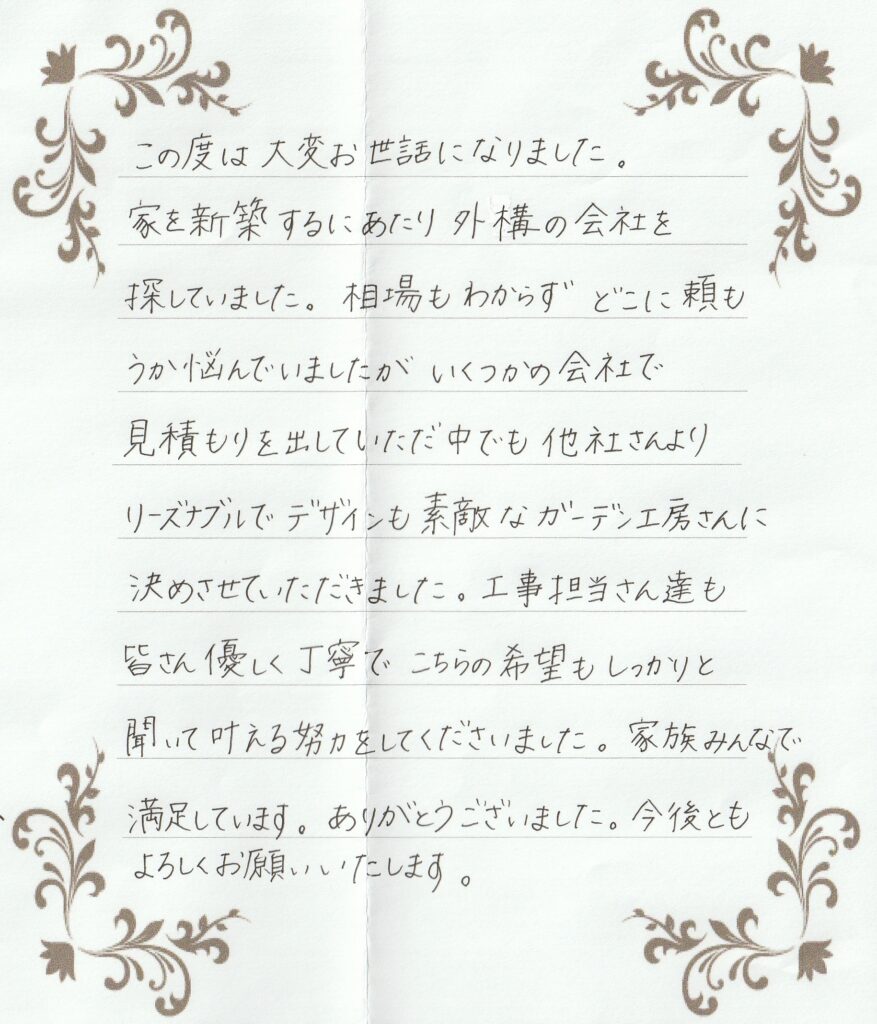 この度は大変お世話になりました。
家を新築するにあたり 外構の会社を
探していました。相場もわからず どこに頼も
うか悩んでいましたが いくつかの会社で
見積もりを出していただ中でも 他社さんより
リーズナブルで デザインも素敵な ガーデン工房さんに
決めさせていただきました。工事担当さん達も
皆さん優しく丁寧で こちらの希望もしっかりと
聞いて叶える努力をしてくださいました。家族みんなで
満足しています。ありがとうございました。今後とも
よろしくお願いいたします。